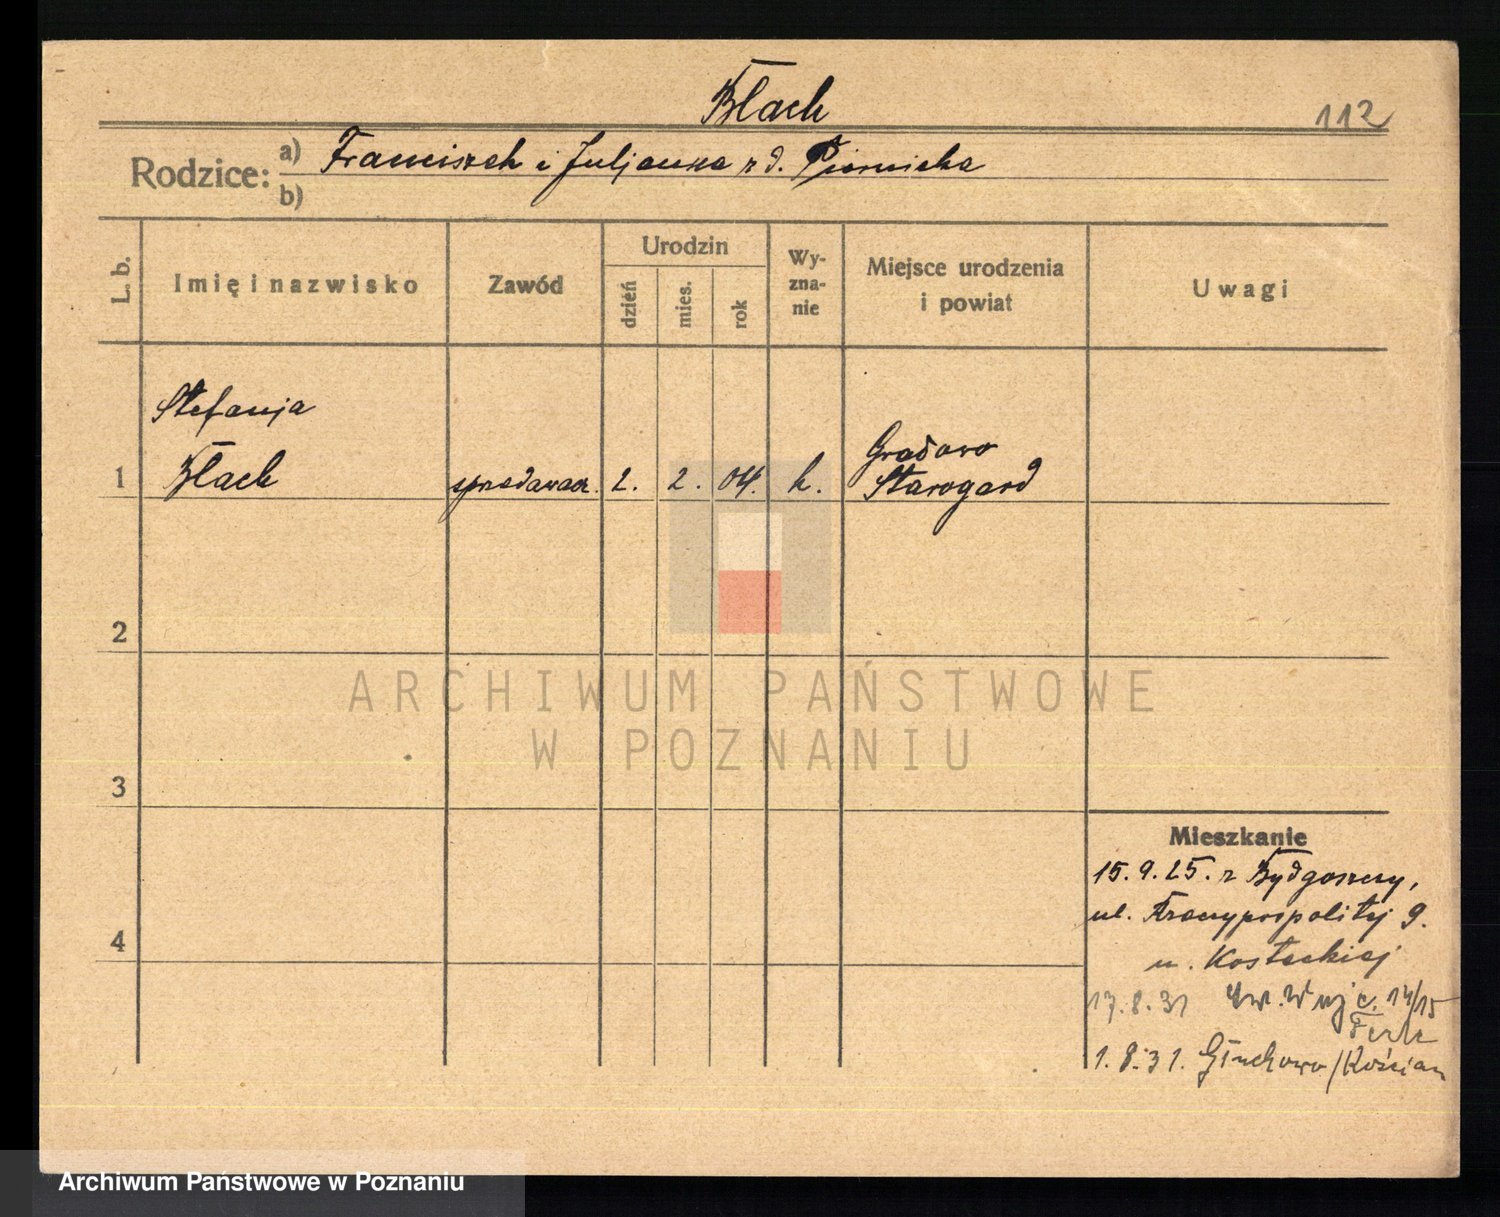 Błach
112
Rodzice:
a) Franciszek i Juljanna z d. Piernicka
b)
L. b.
Imię i nazwisko
Zawód
Urodzin
dzień
mies.
rok
Wy-
zna-
nie
Miejsce urodzenia
i powiat
Uwagi
Stefanja
1 Błach sprzedawacz. 2. 2. 04. k. Gradowo
Starogard
2
3
4
Mieszkanie
15.9.25. z Bydgoszczy,
ul. Rzeczypospolitej 9.
u. Kosteckiej
17.8.31 14/15
1.8.31. Głuchowo/Kościan
ARCHIWUM PAŃSTWOWE
W POZNANIU
Archiwum Państwowe w Poznaniu